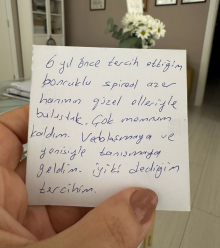 6 yıl önce tercih ettiğim
boncuklu spiral azer
hanımın güzel elleriyle
buluştuk. Çok memnun
kaldım. Vedalaşmaya ve
yenisiyle tanışmaya
geldim. iyiki dediğim
tercihim.